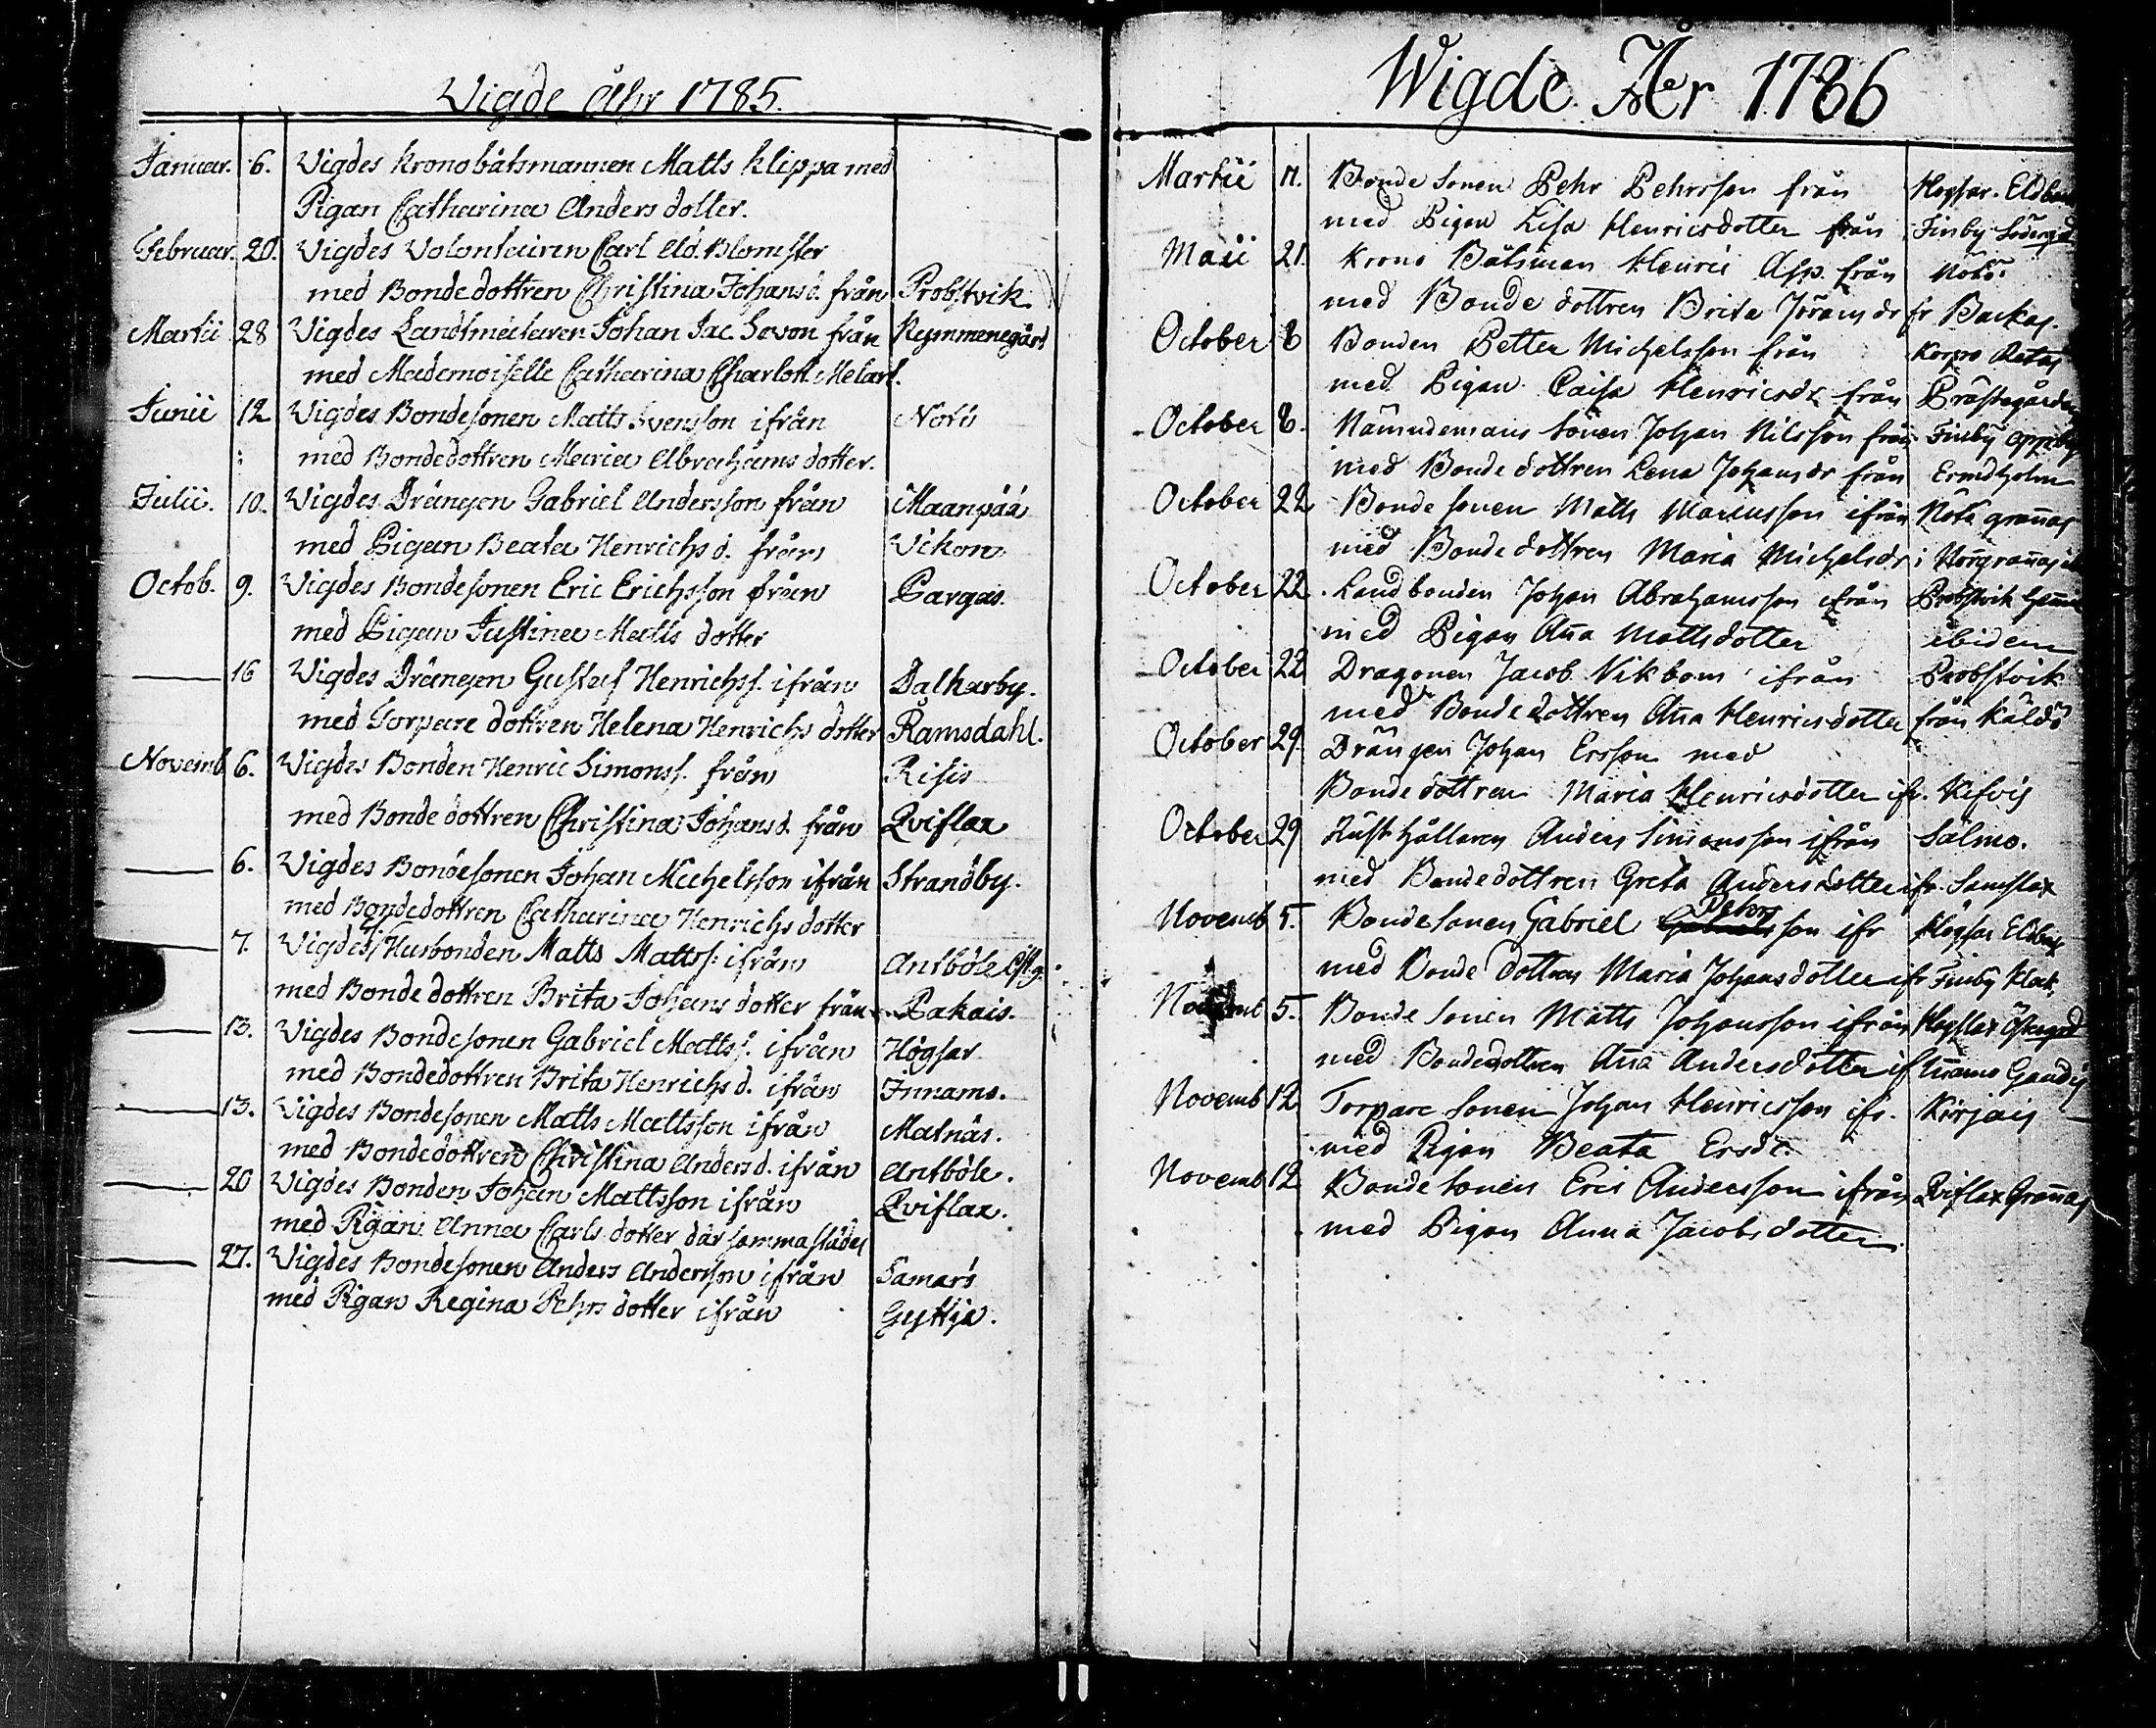 Vigde Åhr 1785.
Januar. 6. Vigdes kronobåtsmannen Matts Klippa med
Pigan Catharina Anders dotter.
Februar. 20. Vigdes Volontairen Carl Ad. Blomster
med Bondedottren Christina Johansd. från Probstvik
Martii 28 Vigdes Landtmätaren Johan Jac. från Kymmenegård
med Mademoiselle Catharina Charlott. Melart.
Junii 12 Vigdes Bondesonen Matts Svensson ifrån Nötö
med Bondedottren Maria Abrahams dotter.
Julii. 10. Vigdes Drängen Gabriel Andersson från Maanpää
med Pigan Beata Henrichs d. från Vikon
Octob. 9. Vigdes Bondesonen Eric Erichsson från Pargas.
med Pigan Justina Matts dotter
16 Vigdes Drängen Gustaf Henrichss. ifrån Dalkarby.
med Torpare dottren Helena Henrichs dotter Ramsdahl.
Novemb. 6. Vigdes Bonden Henric Simonss. från Risis
med Bonde dottren Christina Johansd. från Qviflax
6. Vigdes Bondesonen Johan Michelsson ifrån Strandby.
med Bondedottren Catharina Henrichs dotter
7. Vigdes Husbonden Matts Mattss. ifrån Antböle
med Bonde dottren Brita Johans dotter från Pakais.
13. Vigdes Bondesonen Gabriel Mattss. ifrån Högsar
med Bondedottren Brita Henrichs d. ifrån Innamo.
13. Vigdes Bondesonen Matts Mattsson ifrån Matnäs.
med Bondedottren Christina Andersd. ifrån Antböle.
20 Vigdes Bonden Johan Mattsson ifrån Qviflax.
med Pigan Anna Carls dotter där sammastädes
27. Vigdes Bondesonen Anders Andersson ifrån
med Pigan Regina Pehrs dotter ifrån Gyttja.
Wigde År 1786
Martii Bonde Sonen Pehr Pehrsson från Högsar.
med Pigan Lisa Henricsdotter från Finby
Maii 21. Krono Båtsman Henric Asp. från Nötö
med Bonde dottren Brita Jöransdr fr Backas.
October 8 Bonden Petter Michelsson från Korpo
med Pigan Caisa Henricsdr från Prästegården
October 8. Nämndemans Sonen Johan Nilsson från Finby
med Bonde dottren Lena Johansdr från Ermdholm
October 22 Bonde sonen Matts Marcusson ifrån Nötö grannas
med Bonde dottren Maria Michelsdr i
October 22. Landbonden Johan Abrahamsson ifrån Probstvik
med Pigan Ana Mattsdotter ibidem
October 22 Dragonen Jacob Vikbom ifrån Probstvik
med Bonde dottren Ana Henricsdotter från Käldö
October 29. Drängen Johan Ersson med
Bonde dottren Maria Henricsdotter ifr.
October 29 Rusthållaren Anders Simonsson ifrån Salmo.
med Bondedottren Greta Andersdotter ifr. Samslax
Novemb 5. Bondesonen Gabriel Pehrs son ifr Högsar
med Bonde dottren Maria Johansdotter ifr Finby
Novemb 5. Bonde Sonen Matts Johansson ifrån
med Bondedottren Ana Andersdotter if
Novemb 12 Torpare Sonen Johan Henricsson ifr. Kirjais
med Pigan Beata Ersdr.
Novemb 12 Bonde Sonen Eric Andersson ifrån Qviflax Grannas
med Pigan Anna Jacobsdotter.